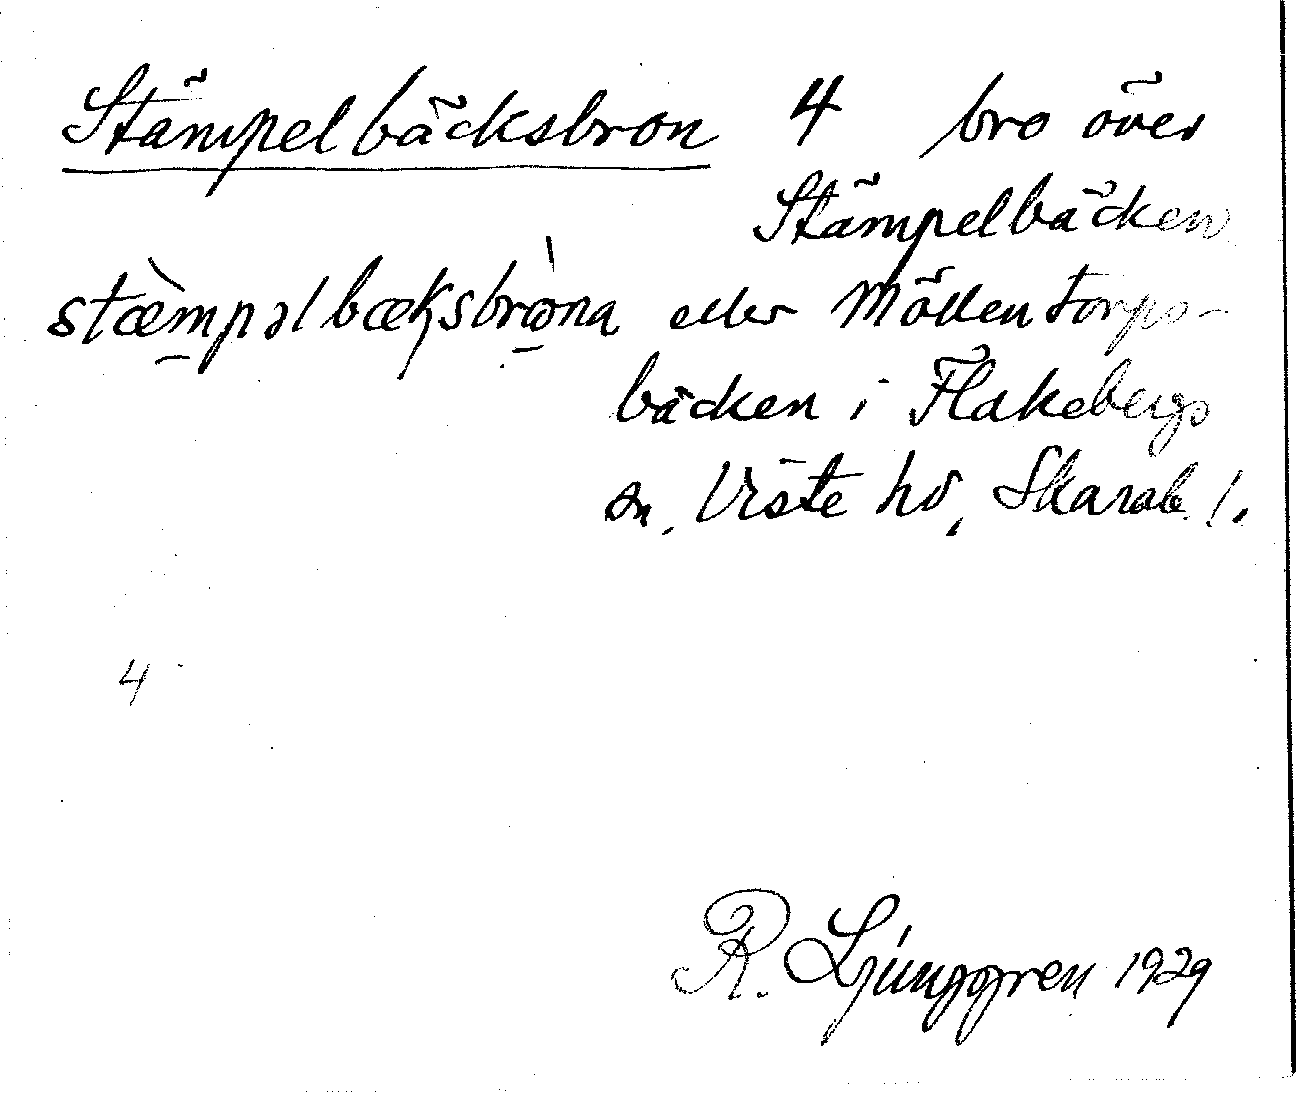 Stämpelbäcksbron 4 bro över
Stämpelbäcken
stæ̀mpəlbæksbròna eller Möllentorps-
bäcken i Flakebergs
sn, Viste hd, Skarab. l.
4
R. Ljunggren 1929